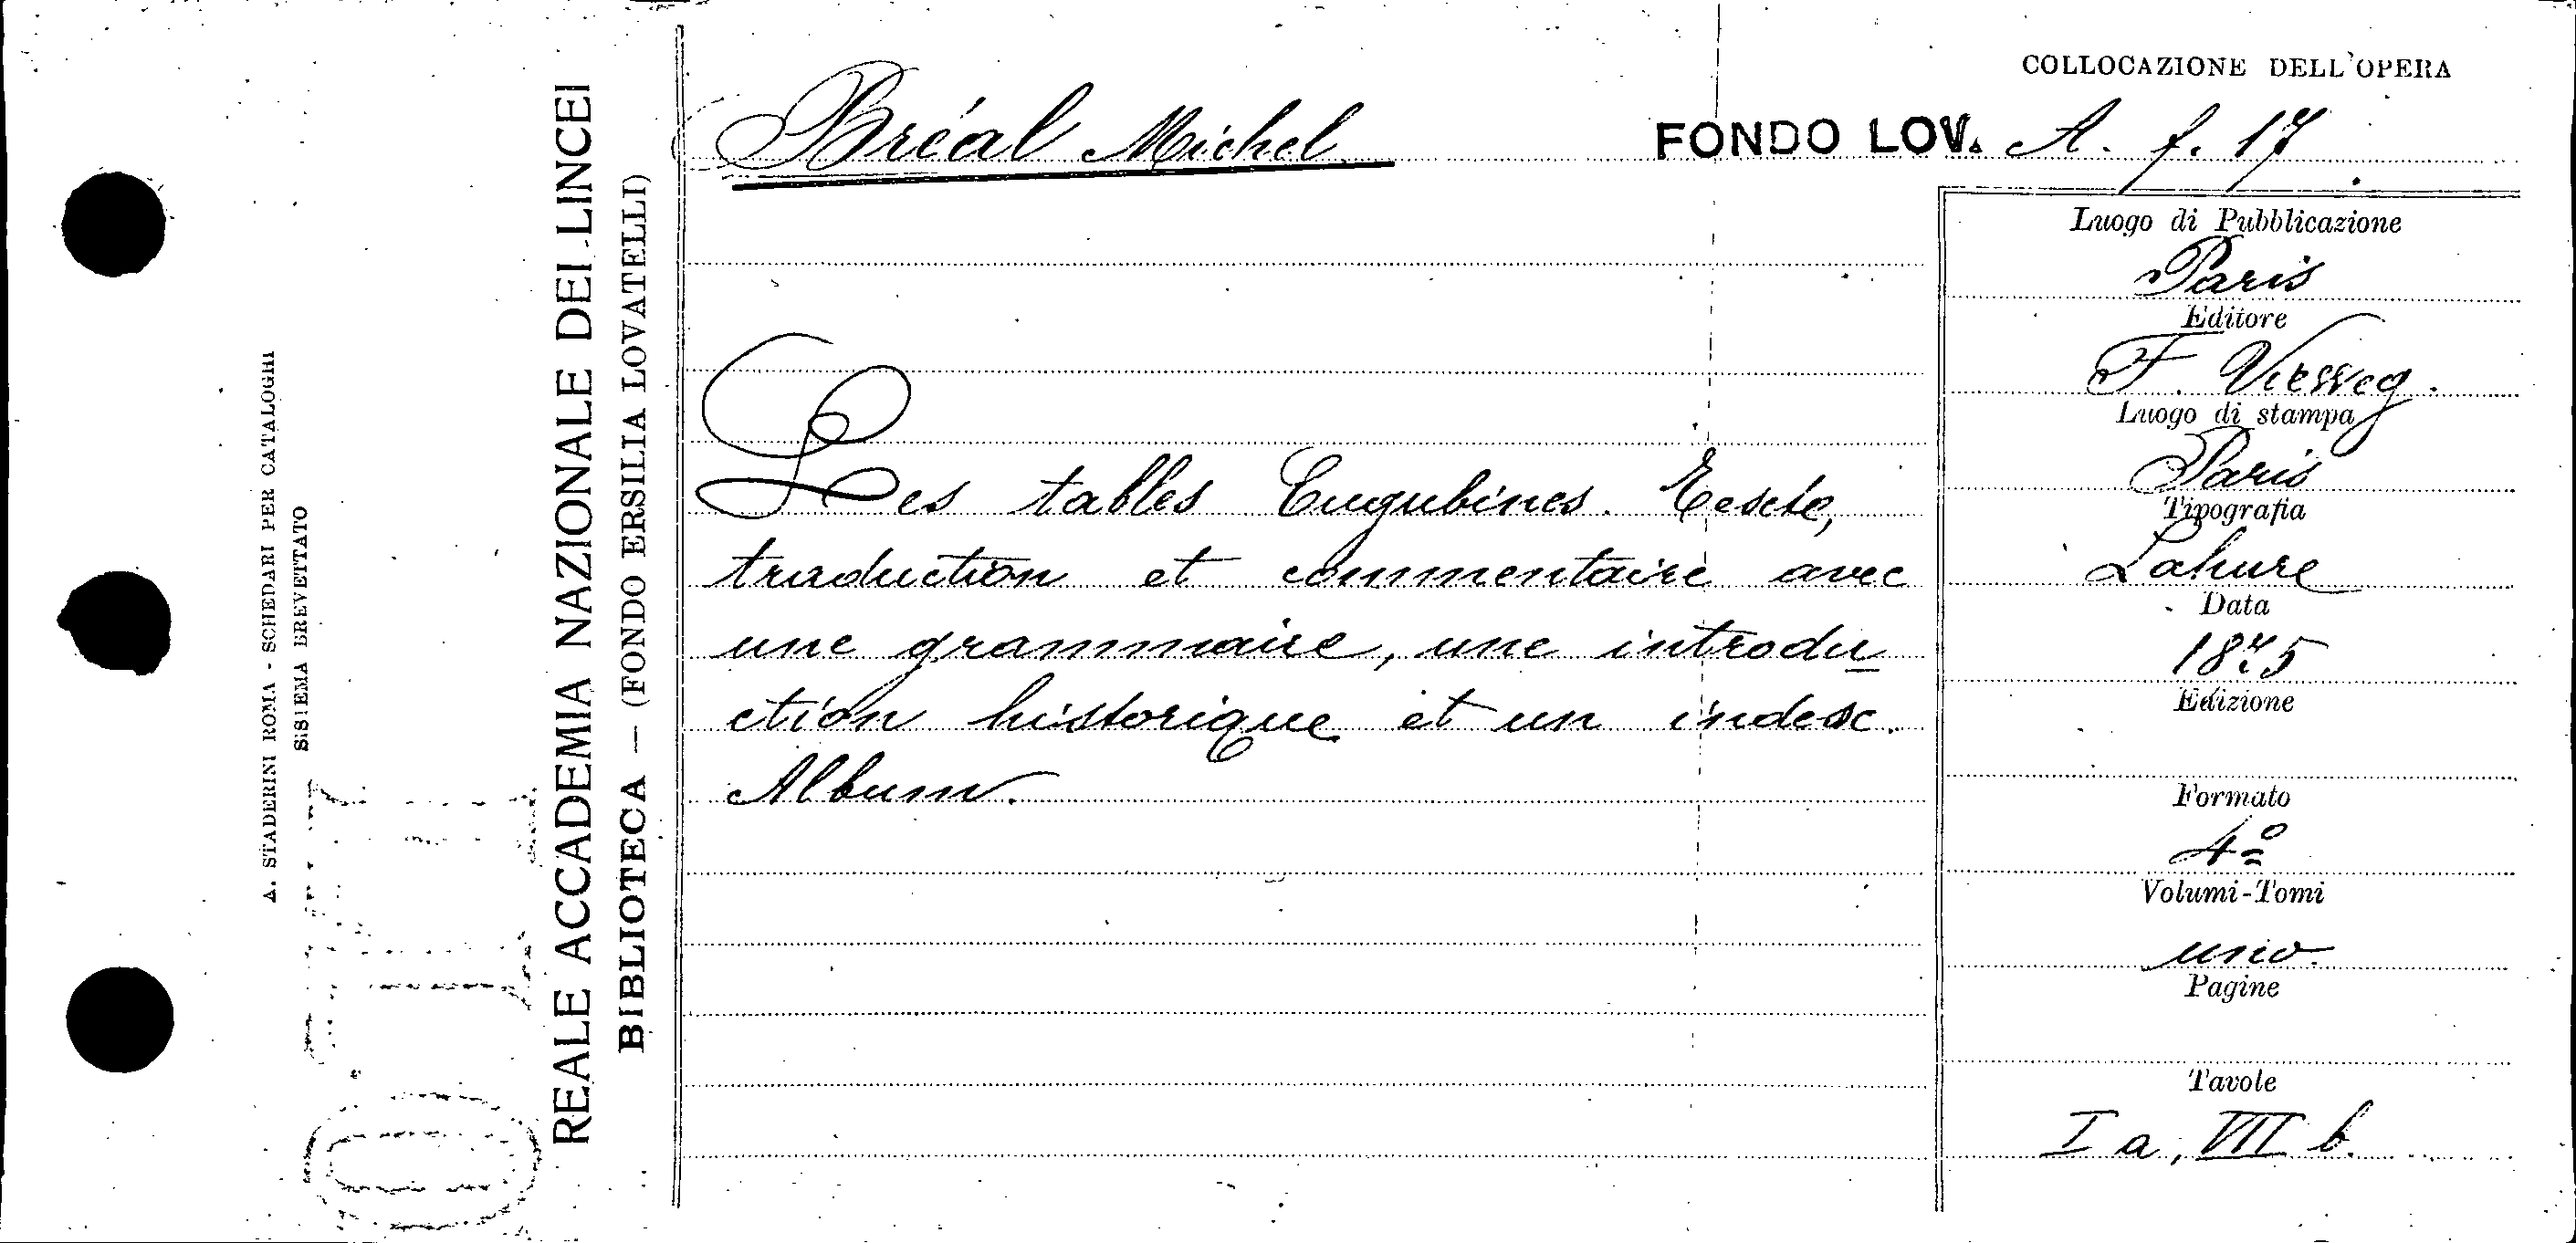 COLLOCAZIONE DELL'OPERA
Bréal Michel
FONDO LOV. A. f. 17
Luogo di Pubblicazione
Paris
Editore
F. Vieweg.
Luogo di stampa
Paris
Tipografia
Lahure
Data
1875
Edizione
Formato
4º
Volumi-Tomi
uno.
Pagine
Tavole
I a, VII b.
Les tables Eugubines. Texte,
traduction et commentaire avec
une grammaire, une introdu
ction historique et un index.
Album.
REALE ACCADEMIA NAZIONALE DEI LINCEI
BIBLIOTECA — (FONDO ERSILIA LOVATELLI)
A. STADERINI ROMA - SCHEDARI PER CATALOGHI
SISTEMA BREVETTATO